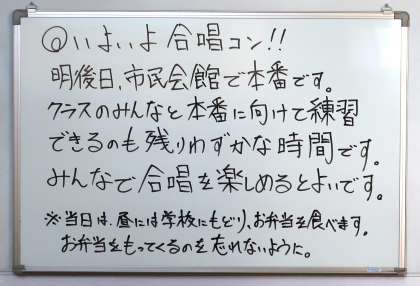 ◎いよいよ合唱コン!!
明後日、市民会館で本番です。
クラスのみんなと本番に向けて練習
できるのも残りわずかな時間です。
みんなで合唱を楽しめるとよいです。
※当日は、昼には学校にもどり、お弁当を食べます。
お弁当をもってくるのを忘れないように。